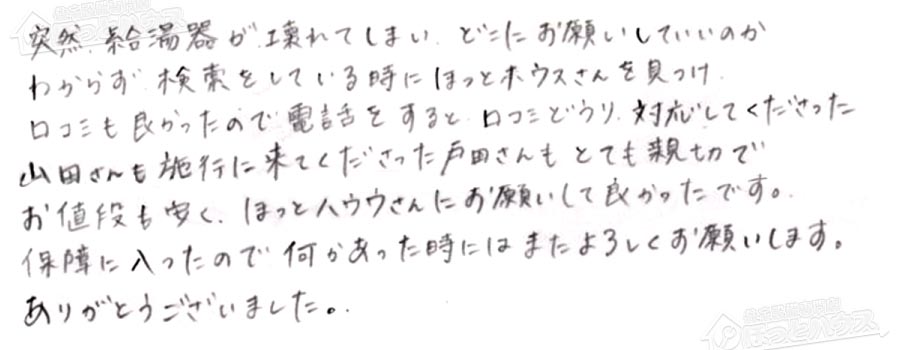 突然、給湯器が壊れてしまい、どこにお願いしていいのか
わからず、検索をしている時にほっとホウスさんを見つけ、
口コミも良かったので電話をすると、口コミどうり、対応してくださった
山田さんも施行に来てくださった戸田さんもとても親切で
お値段も安く、ほっとハウウさんにお願いして良かったです。
保障に入ったので何かあった時にはまたよろしくお願いします。
ありがとうございました。
ほっとハウス